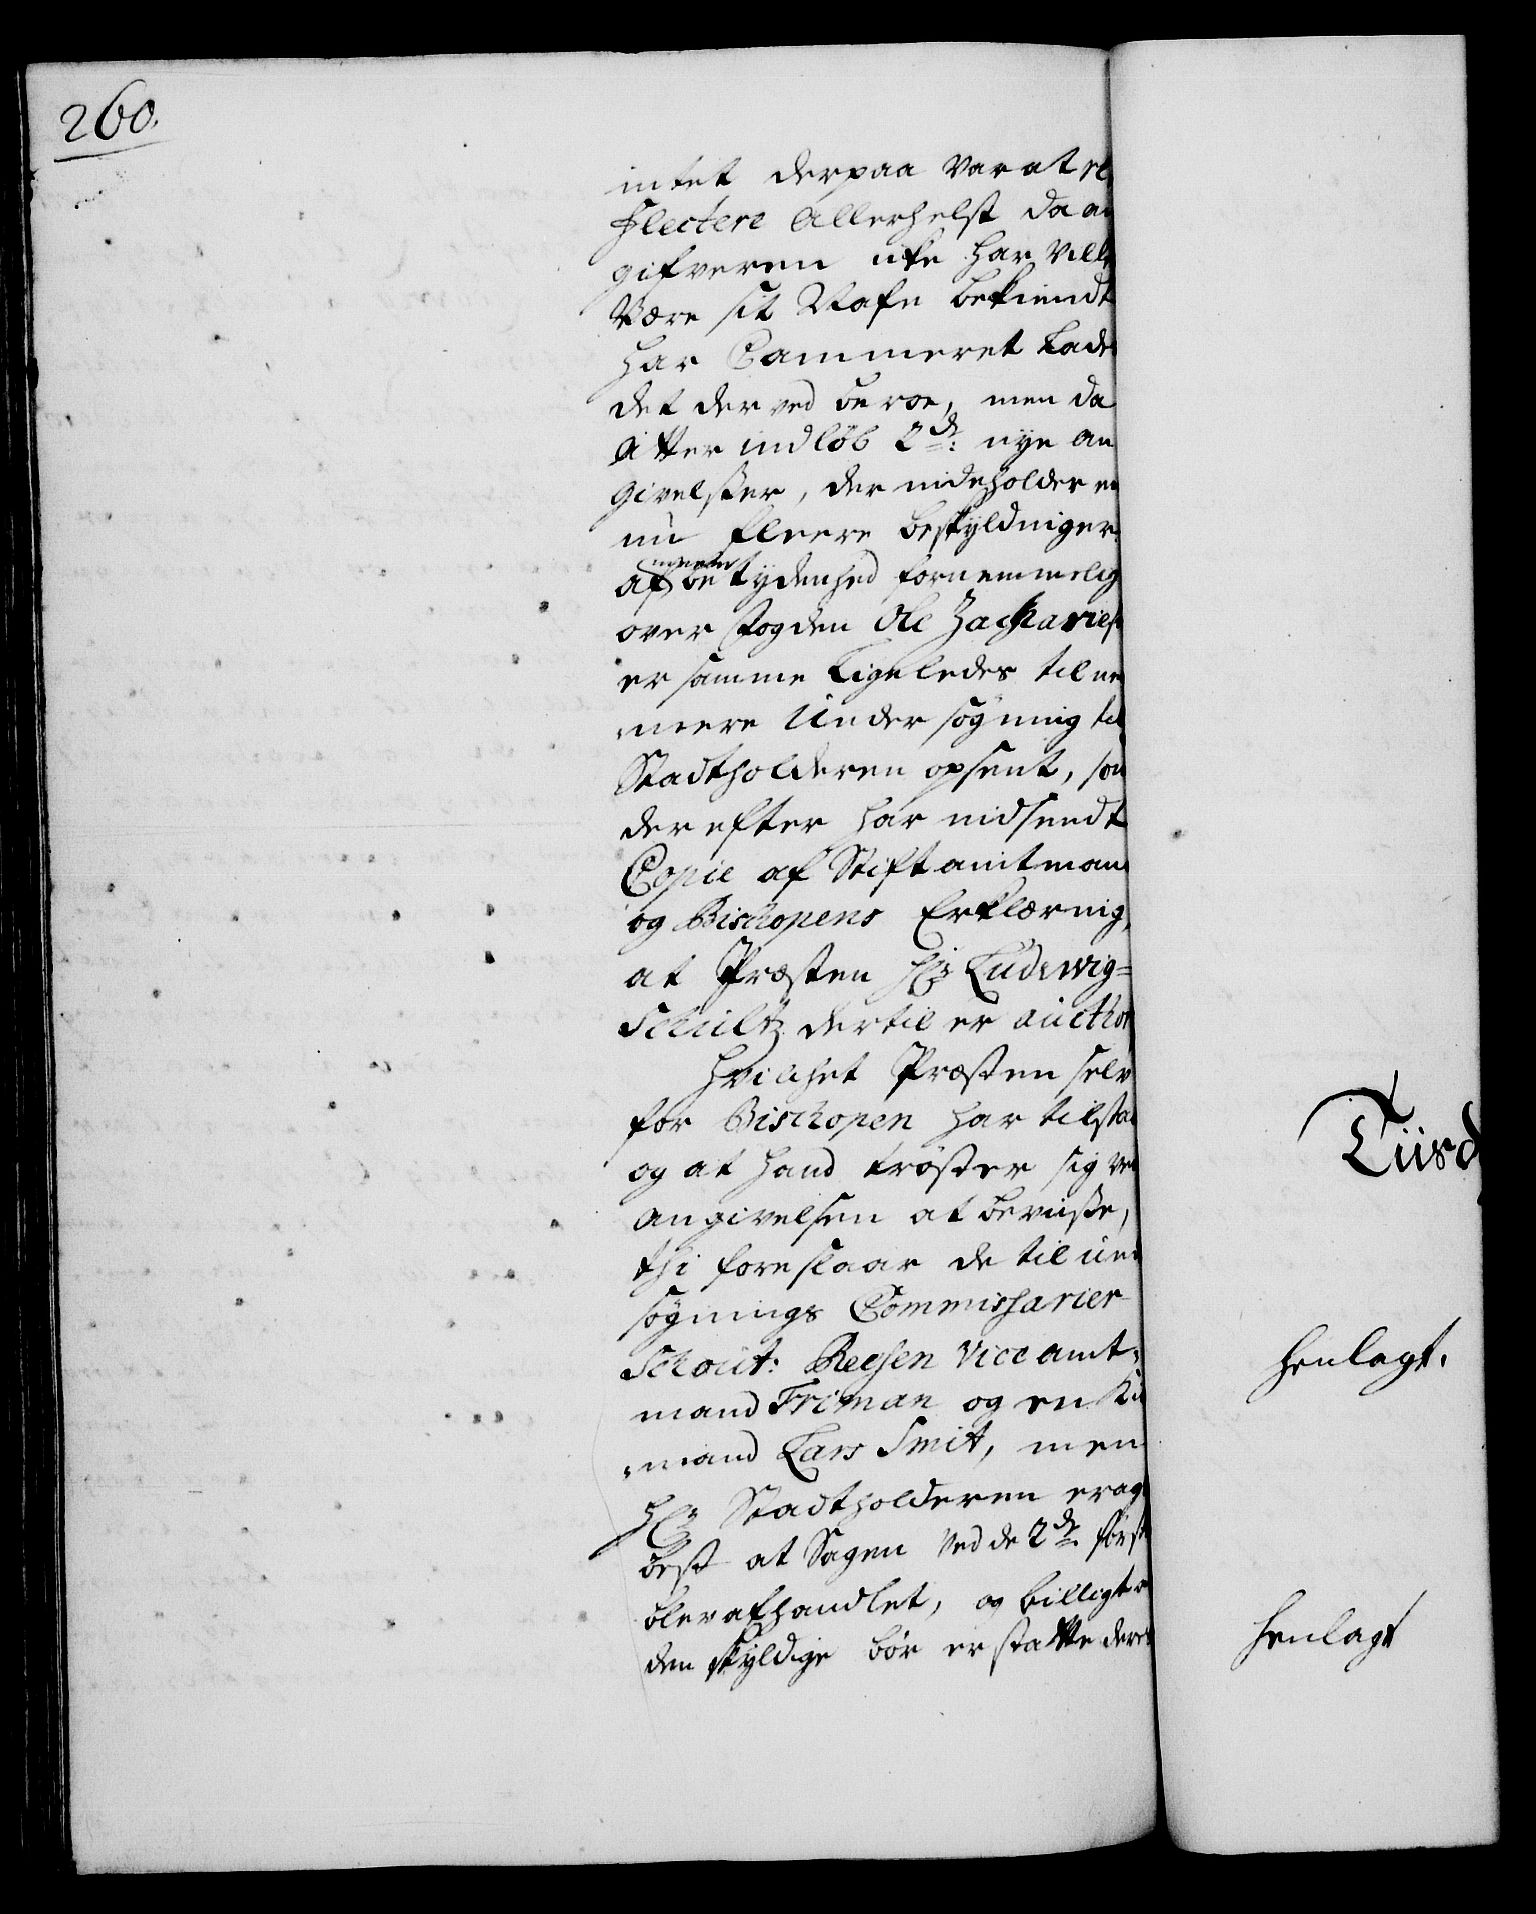 260.
intet derpaa var at re
flectere allerhelst da an
gifveren icke har vill
være sit Nafn bekiendt
har Cammeret lade
det derved beroe, men da
atter indløb 2de: nye an
givelsser, der indeholder en
nu fleere beskyldninger
af meere betydenhed fornemmelig
over Fogden Ole Zacharies
er samme ligeledes til ne
mere Undersøgning til
Stadtholderen opsent, som
derefter har indsendt
Copie af Stiftamtmand
og Bischopens Erklærning,
at Præsten Hr Ludewig=
Schultz dertil er aucthor
Hvilchet Præsten selv
for Bischopen har tilstaa
og at hand trøster sig ved
angivelsen at beviisse,
thi foreslaar de til und
søgnings Commissarier
Schout: Reesen Vice amt=
mand Friman og en Kiø
mand Lars Smit, men
Hr Stadtholderen eragt
best at Sagen ved de 2de første
bler afhandlet, og billigt a
den skyldige bør erstatte dere
Tiisd
henlagt.
henlagt